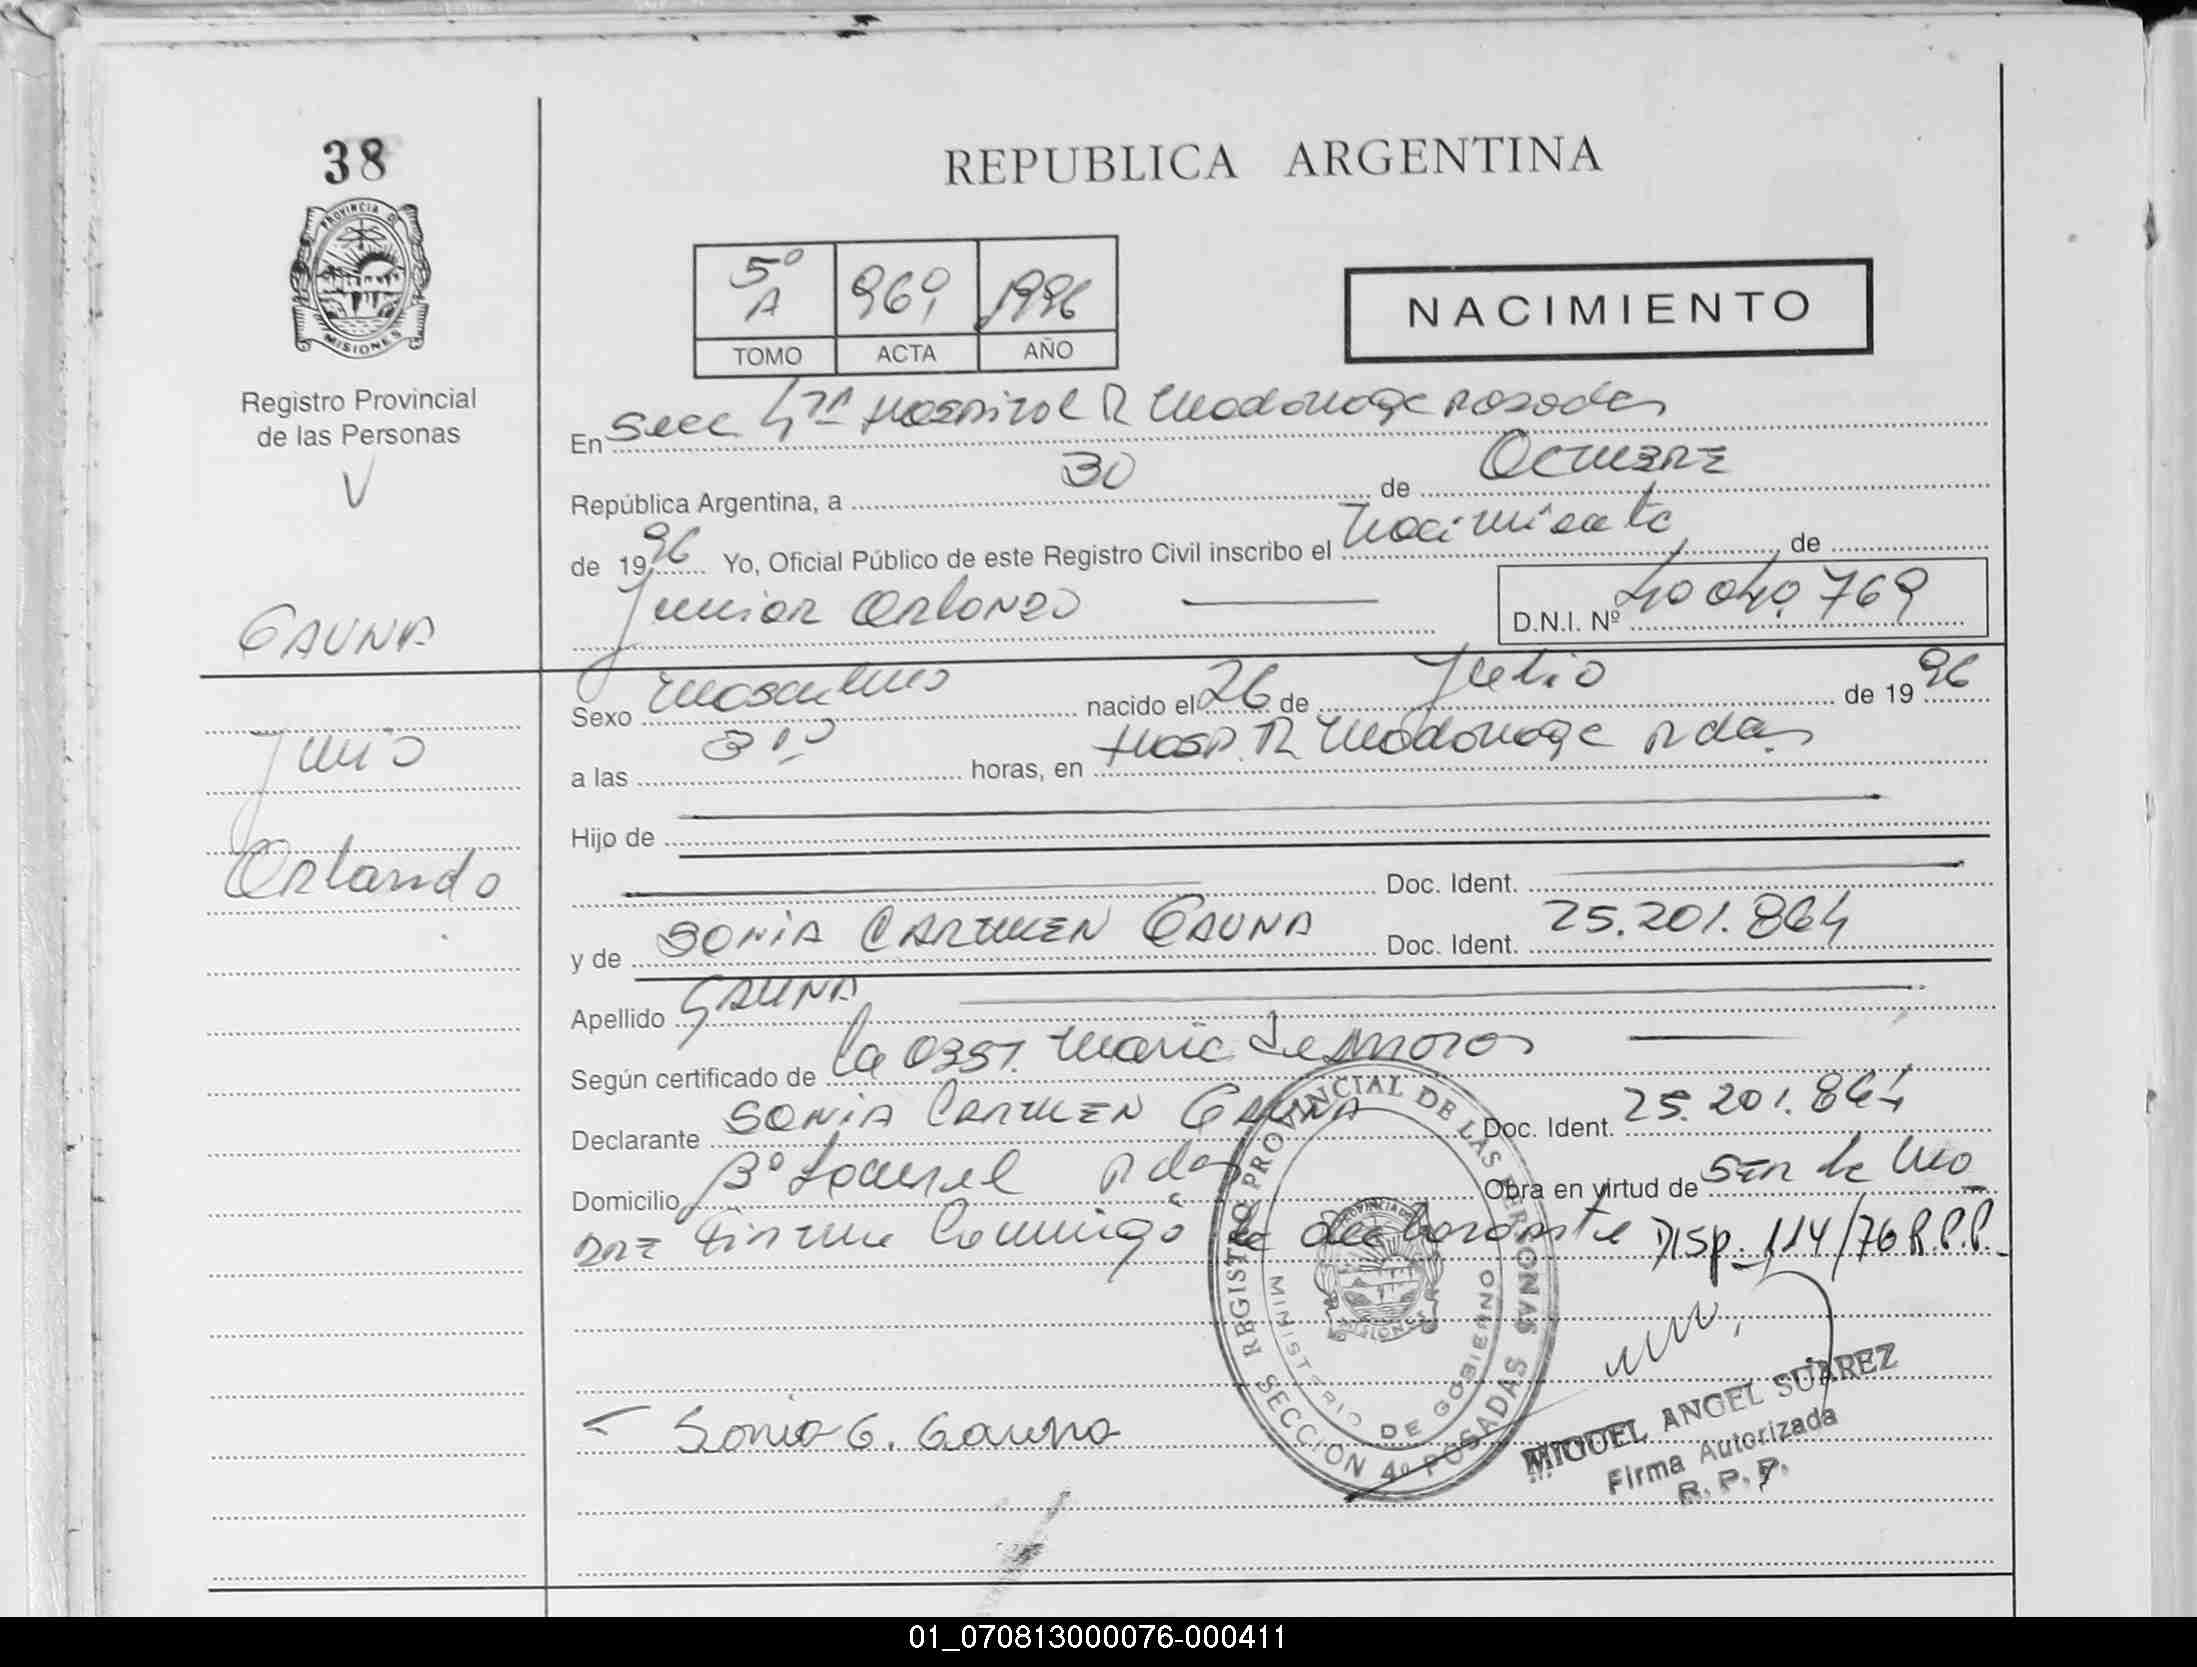 38
REPUBLICA ARGENTINA
PROVINCIA DE
MISIONES
5º A 1996
TOMO ACTA AÑO
NACIMIENTO
Registro Provincial
de las Personas
En Secc 4ta Hospital R Madariaga Posadas
República Argentina, a 30 de Octubre
de 1996 Yo, Oficial Público de este Registro Civil inscribo el Nacimiento, de
Junior Orlando D.N.I. Nº 40.040.769
GAUNA
Sexo Masculino nacido el 26 de Julio de 1996
Junio
a las horas, en Hosp. R Madariaga Pdas
Hijo de
Orlando
Doc. Ident.
y de SONIA CARMEN GAUNA Doc. Ident. 25.201.864
Apellido GAUNA
Según certificado de la Obst. Maria
Declarante SONIA CARMEN GAUNA Doc. Ident. 25.201.864
Domicilio Bº Laurel Pdas Obra en virtud de Ser la Ma
dre Firma Conmigo la declarante Disp. 114/76 R.P.P.
REGISTRO PROVINCIAL DE LAS PERSONAS
MINISTERIO DE GOBIERNO
PROVINCIA DE
MISIONES
SECCION 4º POSADAS
Sonia C. Gauna
MIGUEL ANGEL SUAREZ
Firma Autorizada
R. P. P.
01_070813000076-000411